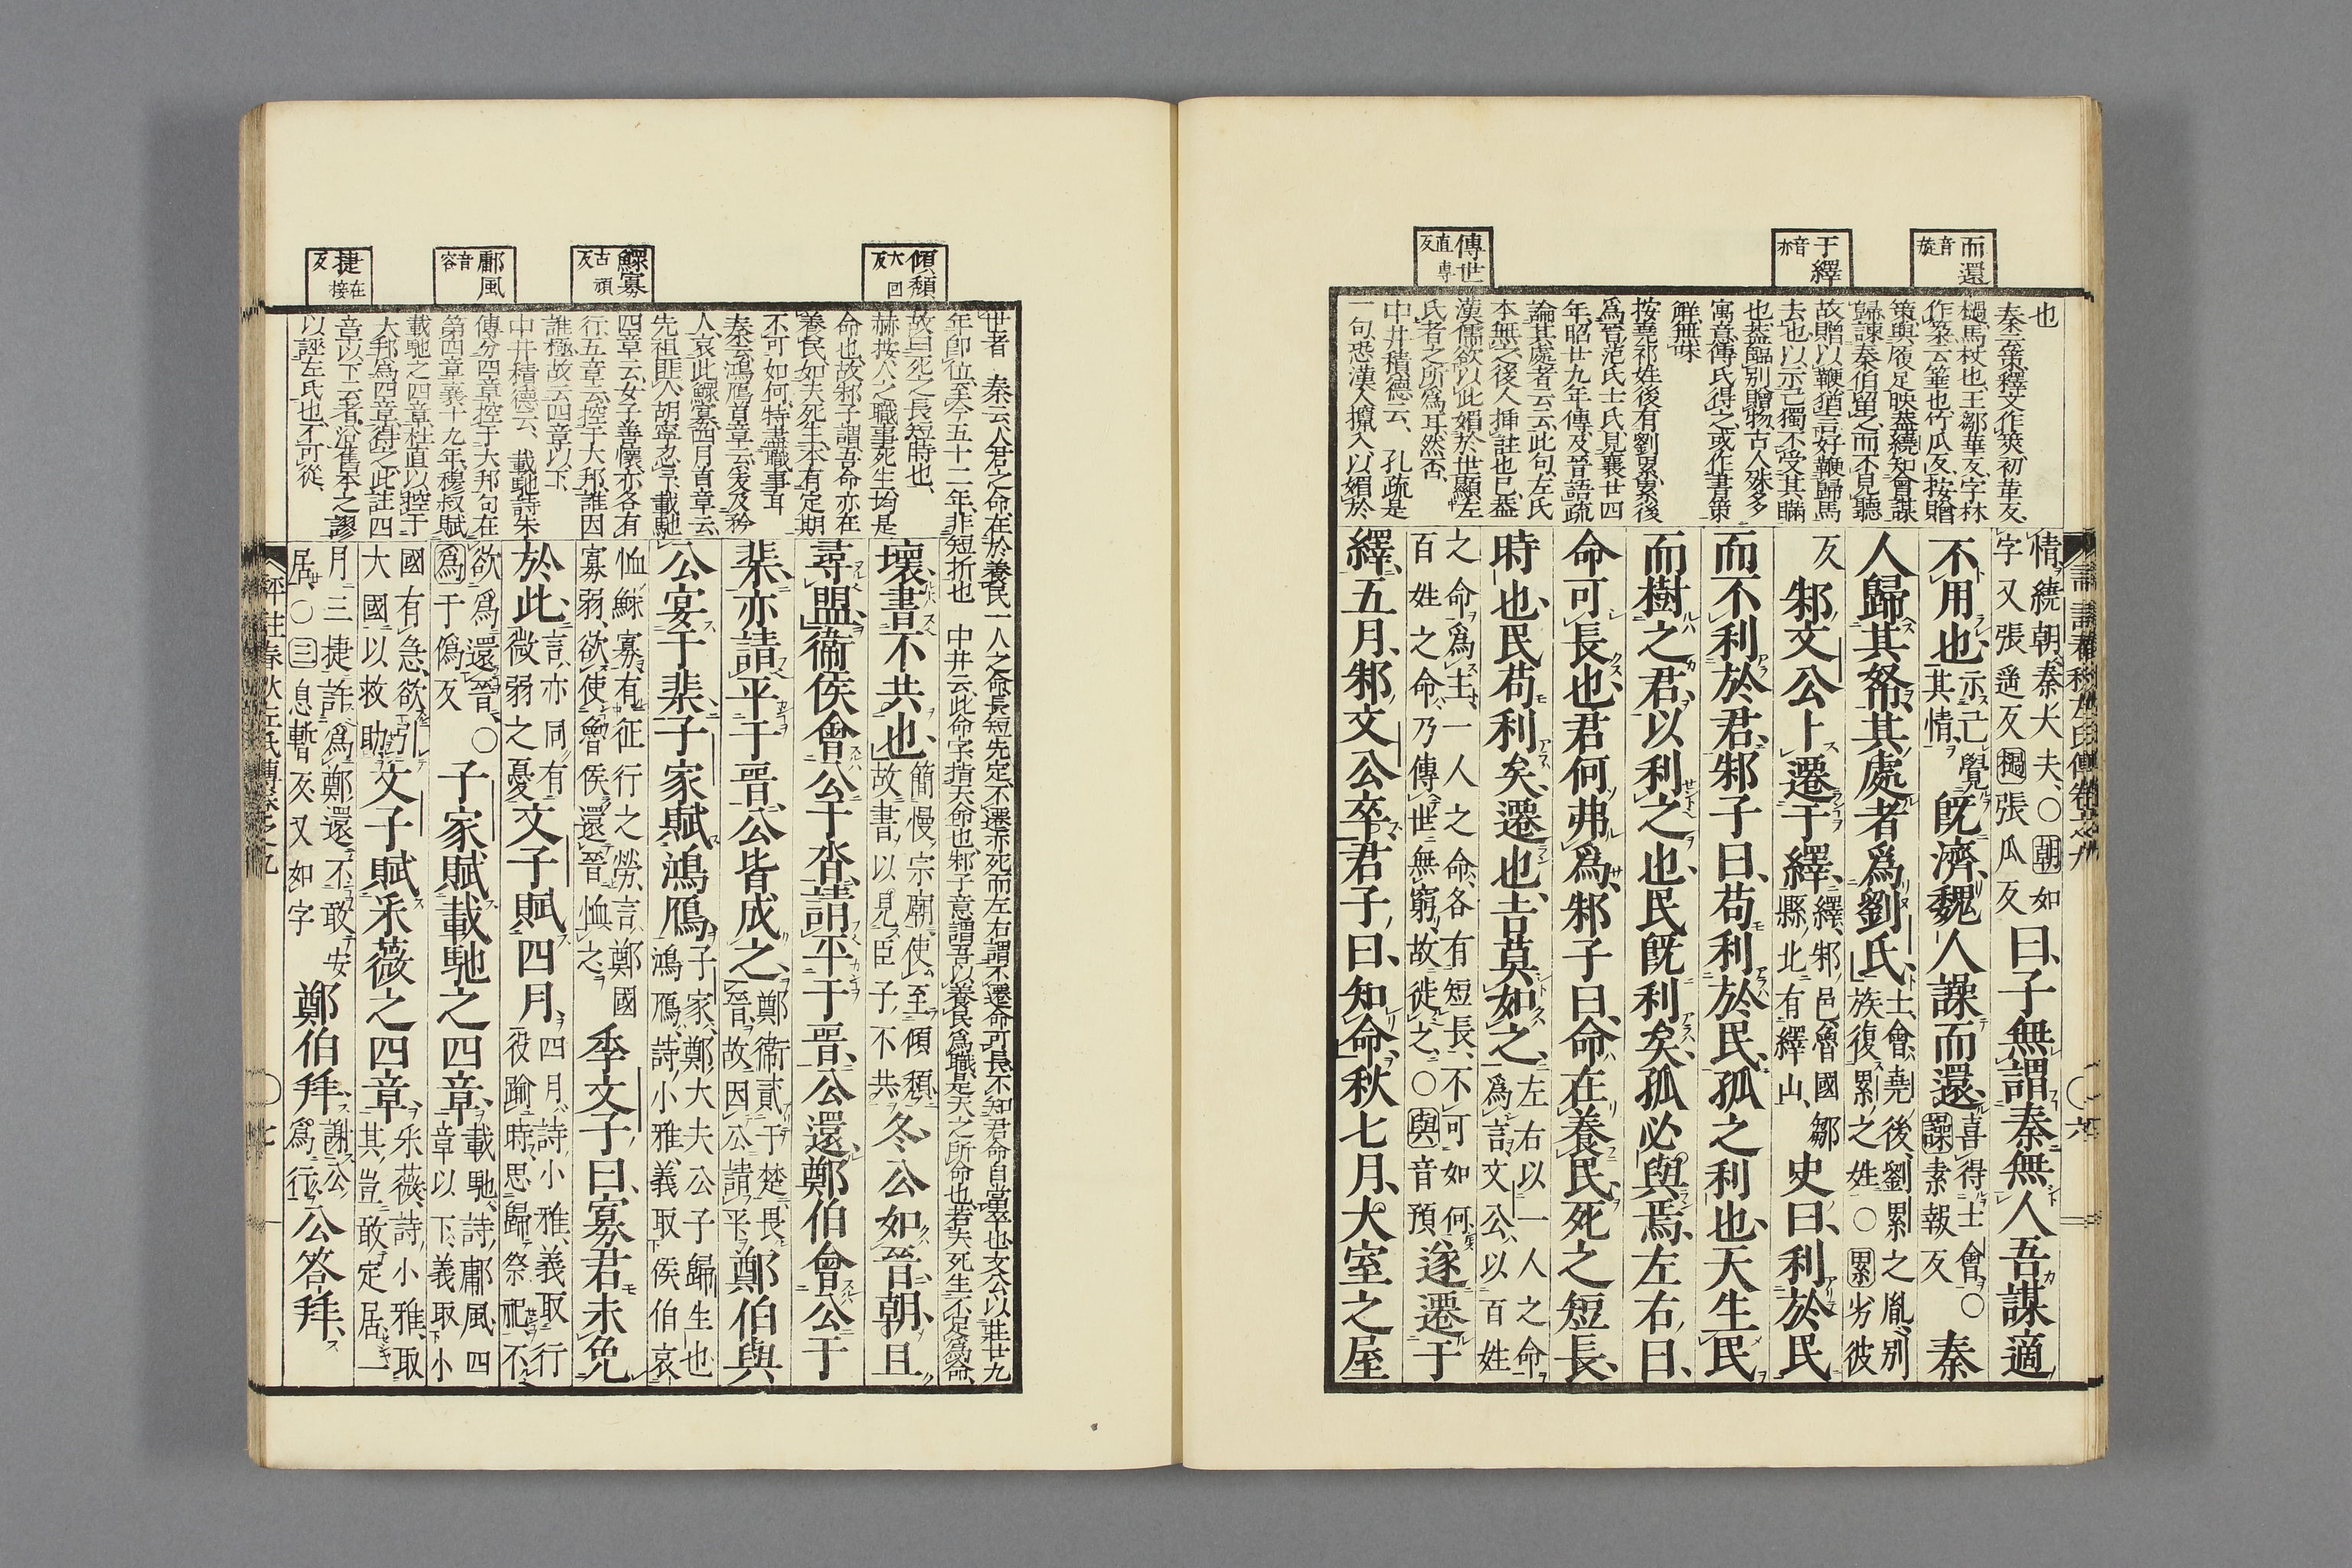 而還
音旋
于繹
音亦
傳世
直專反
也
秦云策釋文作筴初革反
檛馬杖也王鄒華反字林
作䇲云箠也竹瓜反按贈
策與履足映蓋繞知會謀
歸諫秦伯留之而不見聽
故贈以鞭猶言好鞭歸馬
去也以示己獨不受其瞞
也蓋臨別贈物古人殊多
寓意傳氏得之或作書策
鮮無味
按堯祁姓後有劉累累後
爲晉范氏士氏見襄廿四
年昭廿九年傳及晉語疏
論其處者云云此句左氏
本無之後人挿註也已蓋
漢儒欲以此媚於世顯左
氏者之所爲耳然否
中井積德云孔疏是
一句恐漢人攛入以媚於
情繞朝秦大夫○朝如
字又張遥反檛張瓜反
曰子無謂秦無人吾謀適
不用也
示己覺
其情
既濟魏人譟而還
喜得士會○
譟素報反
秦
人歸其帑其處者爲劉氏
士會堯後劉累之胤別
族復累之姓○累劣彼
反
邾文公卜遷于繹
繹邾邑魯國鄒
縣北有繹山
史曰利於民
而不利於君邾子曰苟利於民孤之利也天生民
而樹之君以利之也民既利矣孤必與焉左右曰
命可長也君何弗爲邾子曰命在養民死之短長
時也民苟利矣遷也吉莫如之
左右以一人之命
爲言文公以百姓
之命爲主一人之命各有短長不可如何
百姓之命乃傳世無窮故徙之○與音預
遂遷于
繹五月邾文公卒君子曰知命秋七月大室之屋
傾頽
大回反
鰥寡
古頑反
鄘風
音容
捷
在接反
世者 秦云人君之命在於養民一人之命長短先定不遷亦死而左右謂不遷命可長不知君命自當卒也文公以莊廿九
年即位至今五十二年非短折也 中井云此命字指天命也邾子意謂吾以養民爲職是天之所命也若夫死生不足爲命
故曰死之長短時也
赫按人之職事死生均是
命也故邾子謂吾命亦在
養民如夫死生本有定期
不可如何特盡職事耳
秦云鴻鴈首章云爰及矜
人哀此鰥寡四月首章云
先祖匪人胡寧忍予載馳
四章云女子善懷亦各有
行五章云控于大邦誰因
誰極故云四章以下
中井積德云載馳詩朱
傳分四章控于大邦句在
第四章襄十九年穆叔賦
載馳之四章杜直以控于
大邦爲四章得之此註四
章以下云者沿舊本之謬
以誣左氏也不可從
壞書不共也
簡慢宗廟使至傾頽
故書以見臣子不共
冬公如晉朝且
尋盟衞侯會公于沓請平于晉公還鄭伯會公于
棐亦請平于晉公皆成之
鄭衞貳于楚畏
晉故因公請平
鄭伯與
公宴于棐子家賦鴻鴈
子家鄭大夫公子歸生也
鴻鴈詩小雅義取侯伯哀
恤鰥寡有征行之勞言鄭國
寡弱欲使魯侯還晉恤之
季文子曰寡君未免
於此
言亦同有
微弱之憂
文子賦四月
四月詩小雅義取行
役踰時思歸祭祀不
欲爲還晉○
爲于僞反
子家賦載馳之四章
載馳詩鄘風四
章以下義取小
國有急欲引
大國以救助
文子賦采薇之四章
采薇詩小雅取
其豈敢定居一
月三捷許爲鄭還不敢安
居○三息暫反又如字
鄭伯拜
謝公
爲行
公答拜